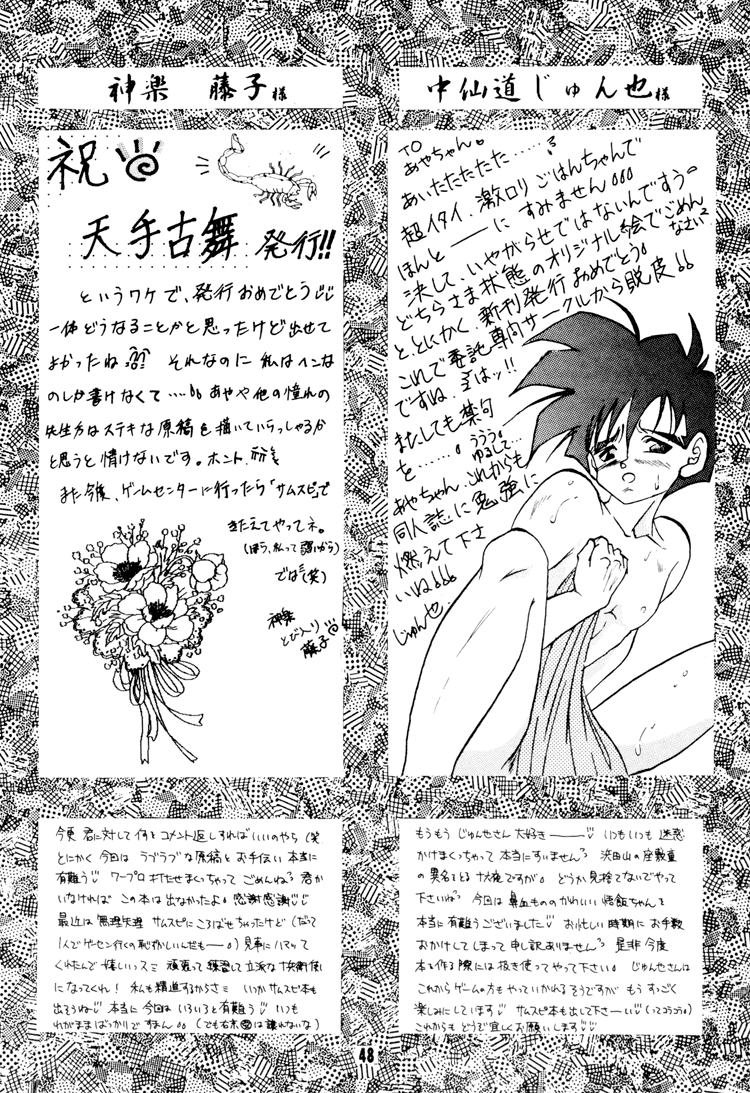 神楽 藤子様
祝
天手古舞 発行!!
というワケで、発行おめでとう
一体どうなることかと思ったけど出せて
よかったね それなのに私はヘンな
のしか書けなくて…… あやや他の憧れの
先生方はステキな原稿を描いていらっしゃるか
と思うと情けないです。ホント
また今後、ゲームセンターに行ったら「サムスピ」で
きたえてやってネ。
(ほら、私って弱いから)
では(笑)
神楽
とび入り
藤子
中仙道じゅん也様
TO
あやちゃん。
あいたたたたた……
超イタイ、激ロリごはんちゃんで
ほんと――にすみません
決して、いやがらせではないんですぅ。
どちらさま状態のオリジナル絵でごめんなさい
と、とにかく、新刊発行おめでとう。
これで委託専門サークルから脱皮
ですね、はッ!!
またしても禁句
を……。うううゆるして…
あやちゃん、これからも
同人誌に勉強に
燃えて下さ
いね
じゅん也
今更 君に対して何をコメント返しすればいいのやら(笑
とにかく 今回は ラブラブな原稿とお手伝い 本当に
有難う ワープロ打たせまくっちゃって ごめんね 君が
いなければ この本は出なかったよ。感謝感謝
最近は無理矢理 サムスピにころばせちゃったけど(だって
1人でゲーセン行くの恥ずかしいんだもー)見事にハマって
くれたんで 嬉しいっス 頑張って練習して立派な十兵衛使い
になってくれ! 私も精進するからさ いつかサムスピ本も
出そうね 本当に今回はいろいろと有難う いつも
わがままばっかりですまん (でも右京は譲れないな)
もうもう じゅん也さん 大好き――― いつもいつも 迷惑
かけまくっちゃって 本当にすいません 浜田山の座敷童
の異名をとる ですが。どうか見捨てないでやって
下さいね 今回は 鼻血もののかわいい 悟飯ちゃんを
本当に有難うございました お忙しい時期に お手数
おかけしてしまって 申し訳ありません 是非 今度
本を作る際には 扱き使ってやって下さい。じゅん也さんは
これからゲームの方もやっていかれるそうですが もうすっごく
楽しみにしています サムスピ本も出して下さーい
これからもどうぞ宜しくお願いします
48